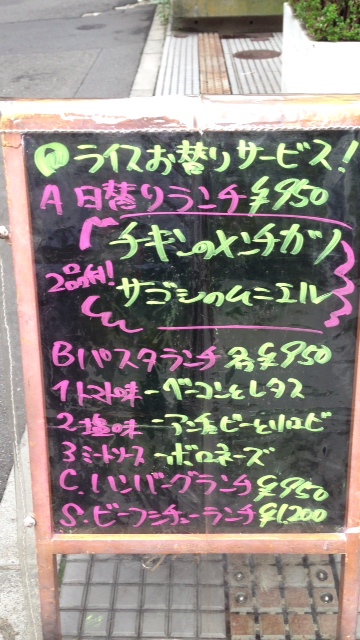 ライスお替りサービス!
A 日替りランチ ¥950
チキンのメンチカツ
2品付!
サゴシのムニエル
Bパスタランチ 各¥950
1トマト味ーベーコンとレタス
2塩味ーアンチョビーとケロビ
3ミートソースーボロネーズ
C.ハンバーグランチ ¥950
S.ビーフシチューランチ ¥1,200